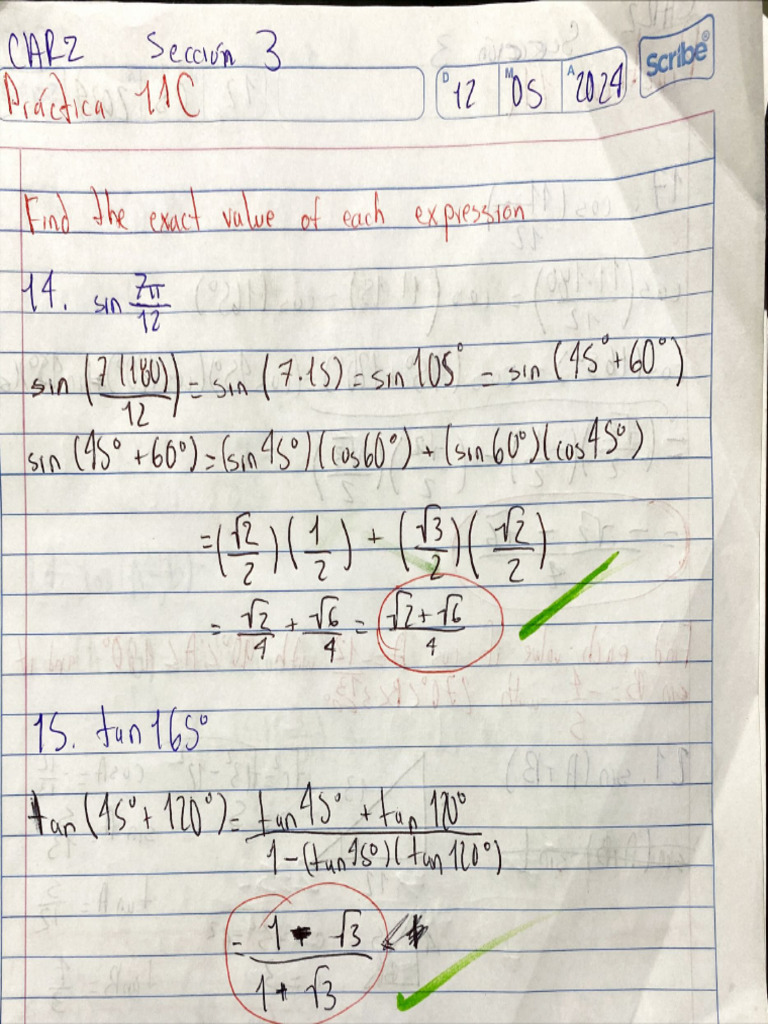 CAR2 Sección 3
Scribe®
Práctica 11C
D 12 M 05 A 2024
Find the exact value of each expression
14. sin 7π/12
sin (7(180)/12) = sin (7·15) = sin 105° = sin (45° + 60°)
sin (45° + 60°) = (sin 45°)(cos 60°) + (sin 60°)(cos 45°)
= (√2/2)(1/2) + (√3/2)(√2/2)
= √2/4 + √6/4 = √2 + √6/4
15. tan 165°
tan (45° + 120°) = tan 45° + tan 120°/1 - (tan 45°)(tan 120°)
= 1 - √3/1 + √3